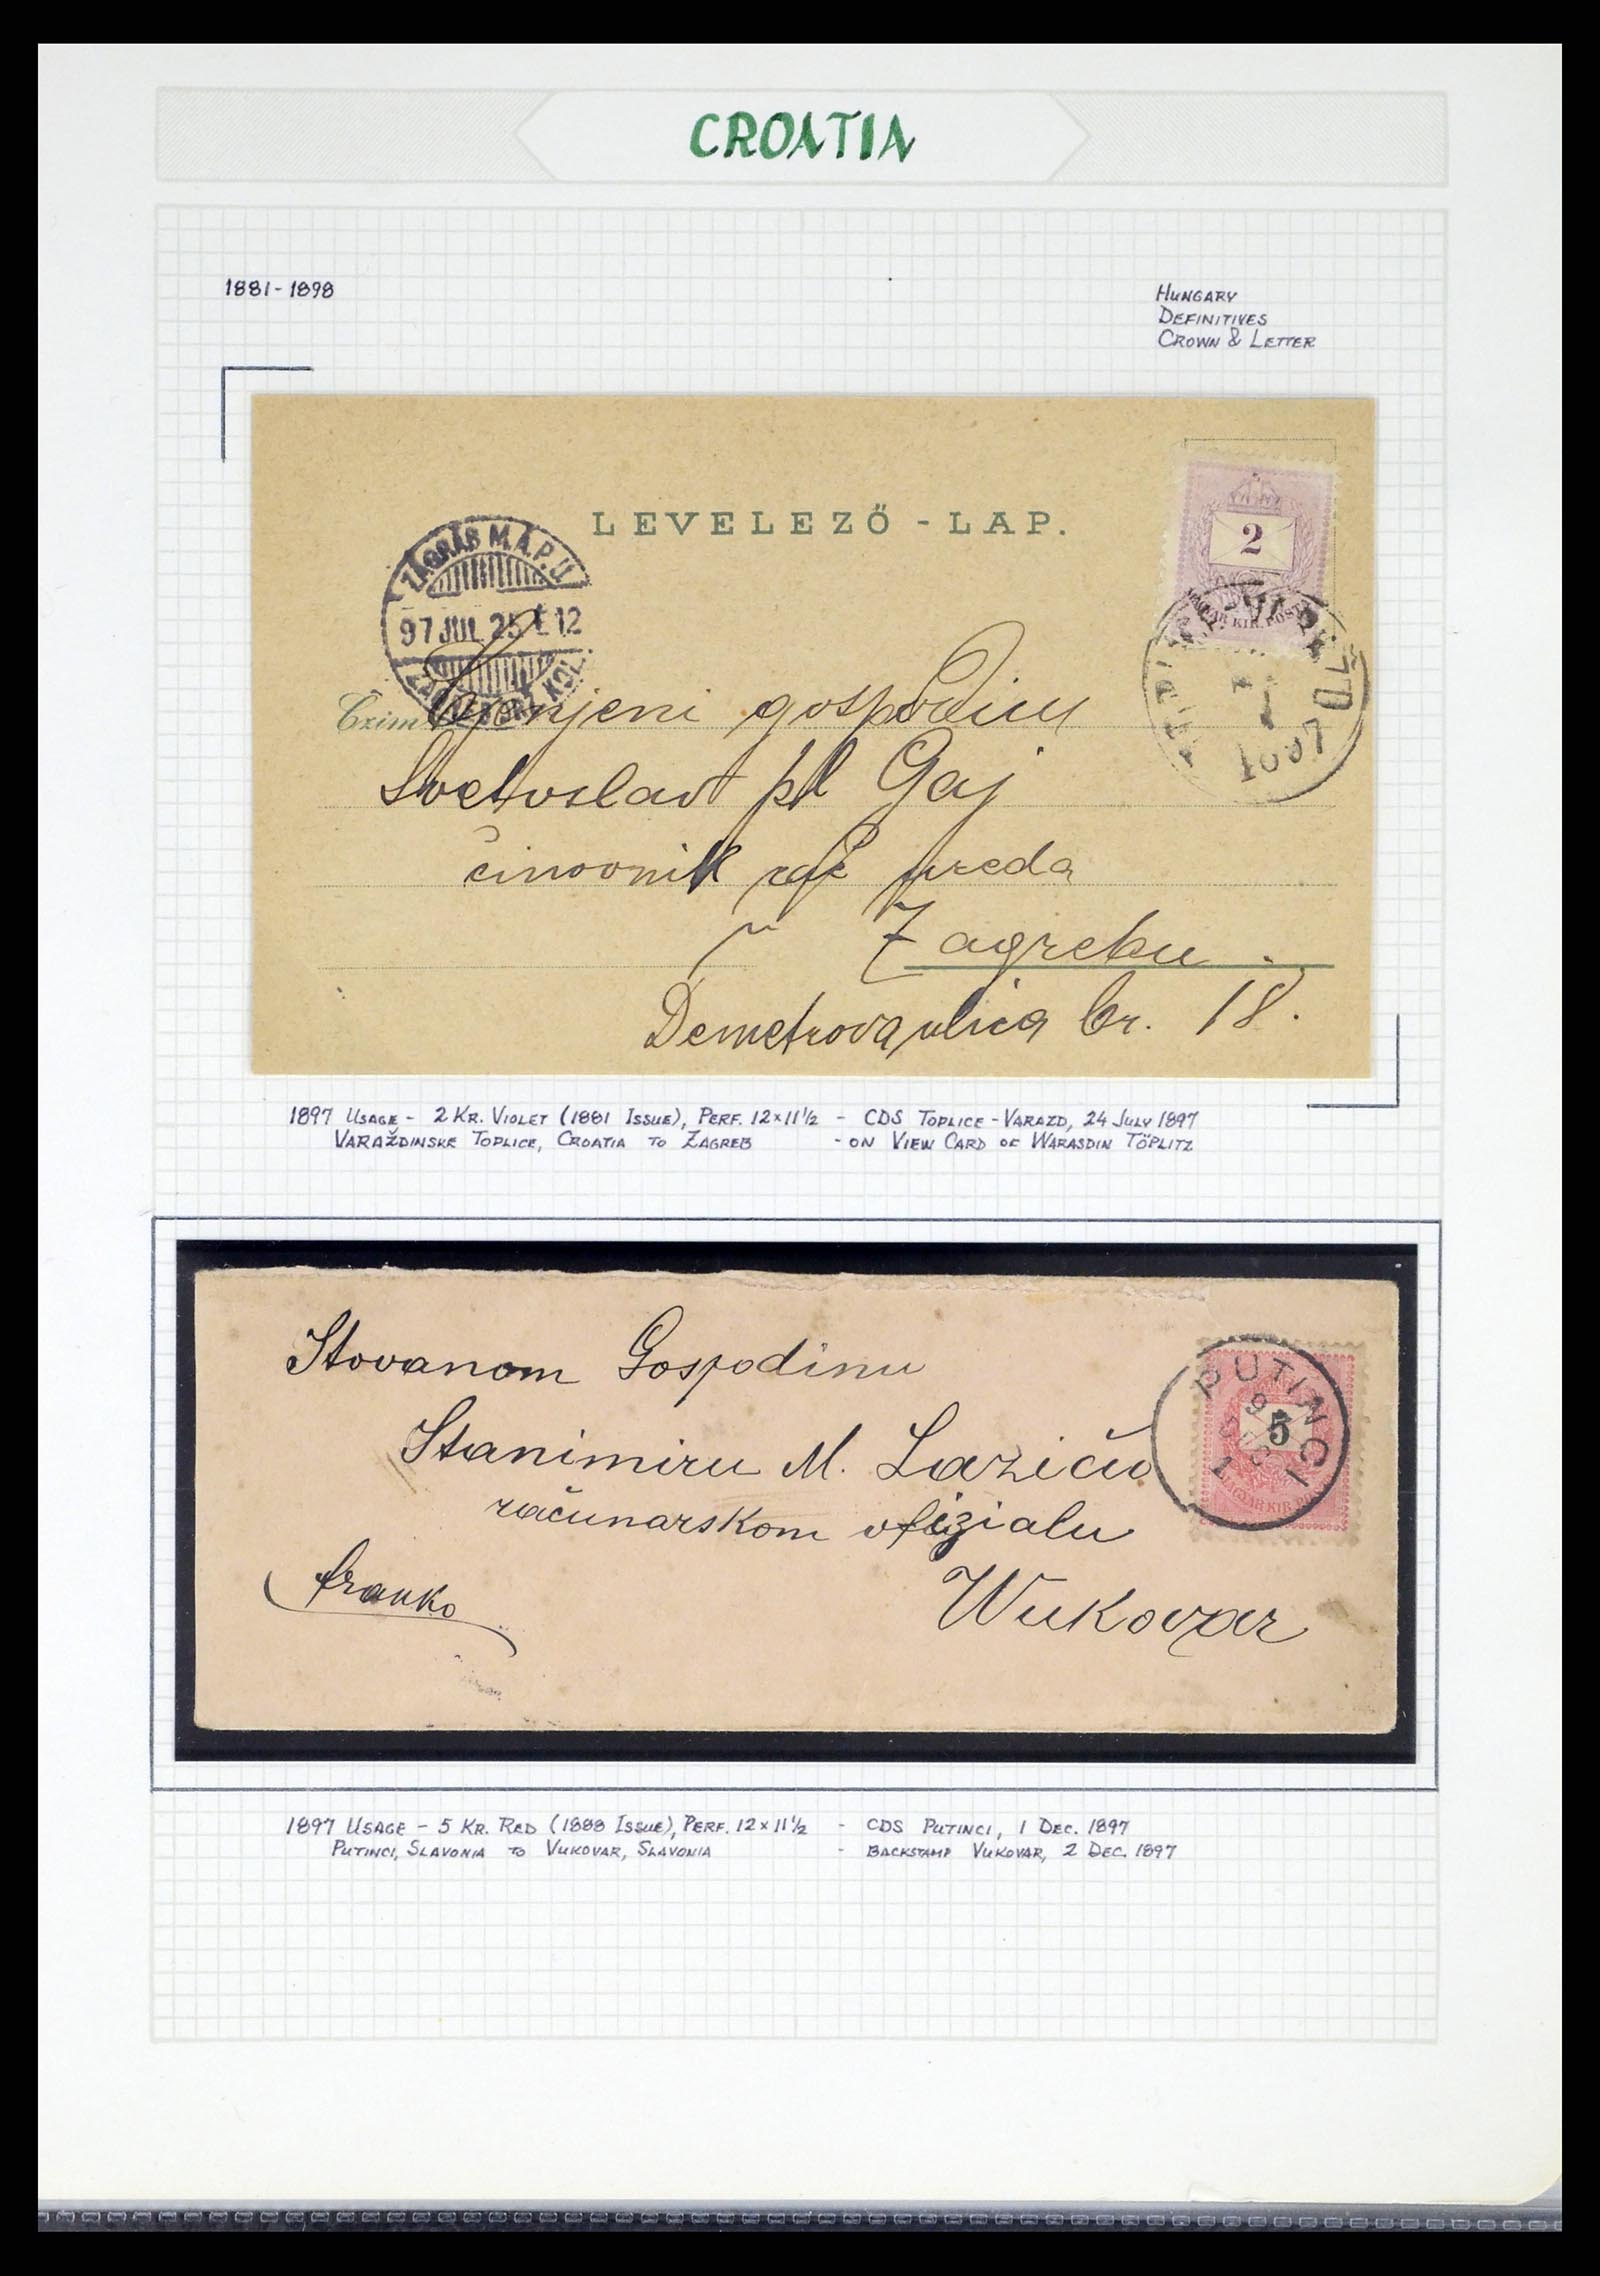 CROATIA
1881-1898
HUNGARY
DEFINITIVES
CROWN & LETTER
LEVELEZŐ-LAP.
2
MAGYAR KIR. POSTA
ZÁGRÁB M.Á.P.U.
97 JUL 25 É 12
1897
Czim
Cijenjeni gospodin
Svetoslav pl Gaj
činovnik ureda
u Zagrebu.
Demetrova ulica br. 18.
1897 USAGE - 2 KR. VIOLET (1881 ISSUE), PERF. 12×11½ - CDS TOPLICE-VARAZD, 24 JULY 1897
VARAŽDINSKE TOPLICE, CROATIA TO ZAGREB - ON VIEW CARD OF WARASDIN TÖPLITZ
Štovanom Gospodinu
Stanimiru M. Laziću
računarskom oficialu
franko
Wukovar
PUTINCI
5
MAGYAR KIR. POSTA
1897 USAGE - 5 KR. RED (1888 ISSUE), PERF. 12×11½ - CDS PUTINCI, 1 DEC. 1897
PUTINCI, SLAVONIA TO VUKOVAR, SLAVONIA - BACKSTAMP VUKOVAR, 2 DEC. 1897